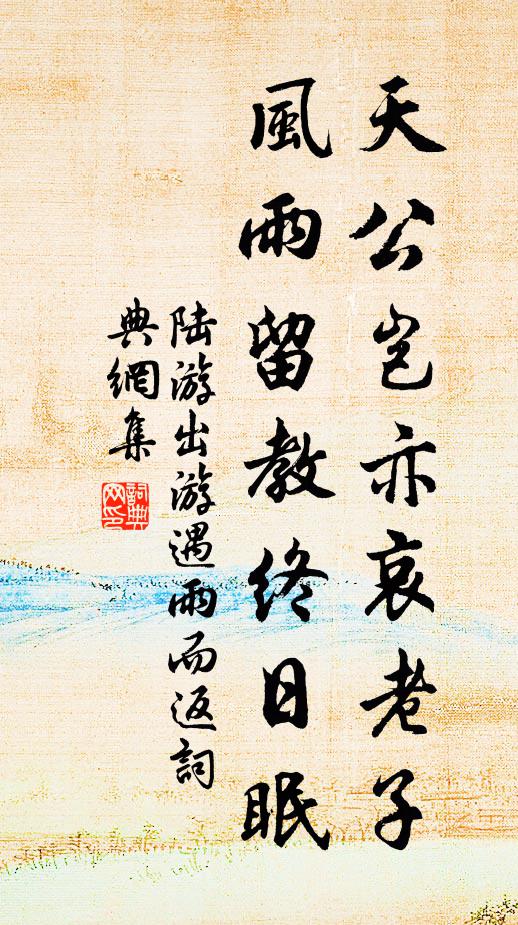 天公岂亦哀老子
風雨留教終日眠
陆游出游遇雨而返詞
典網集
詞典
网印